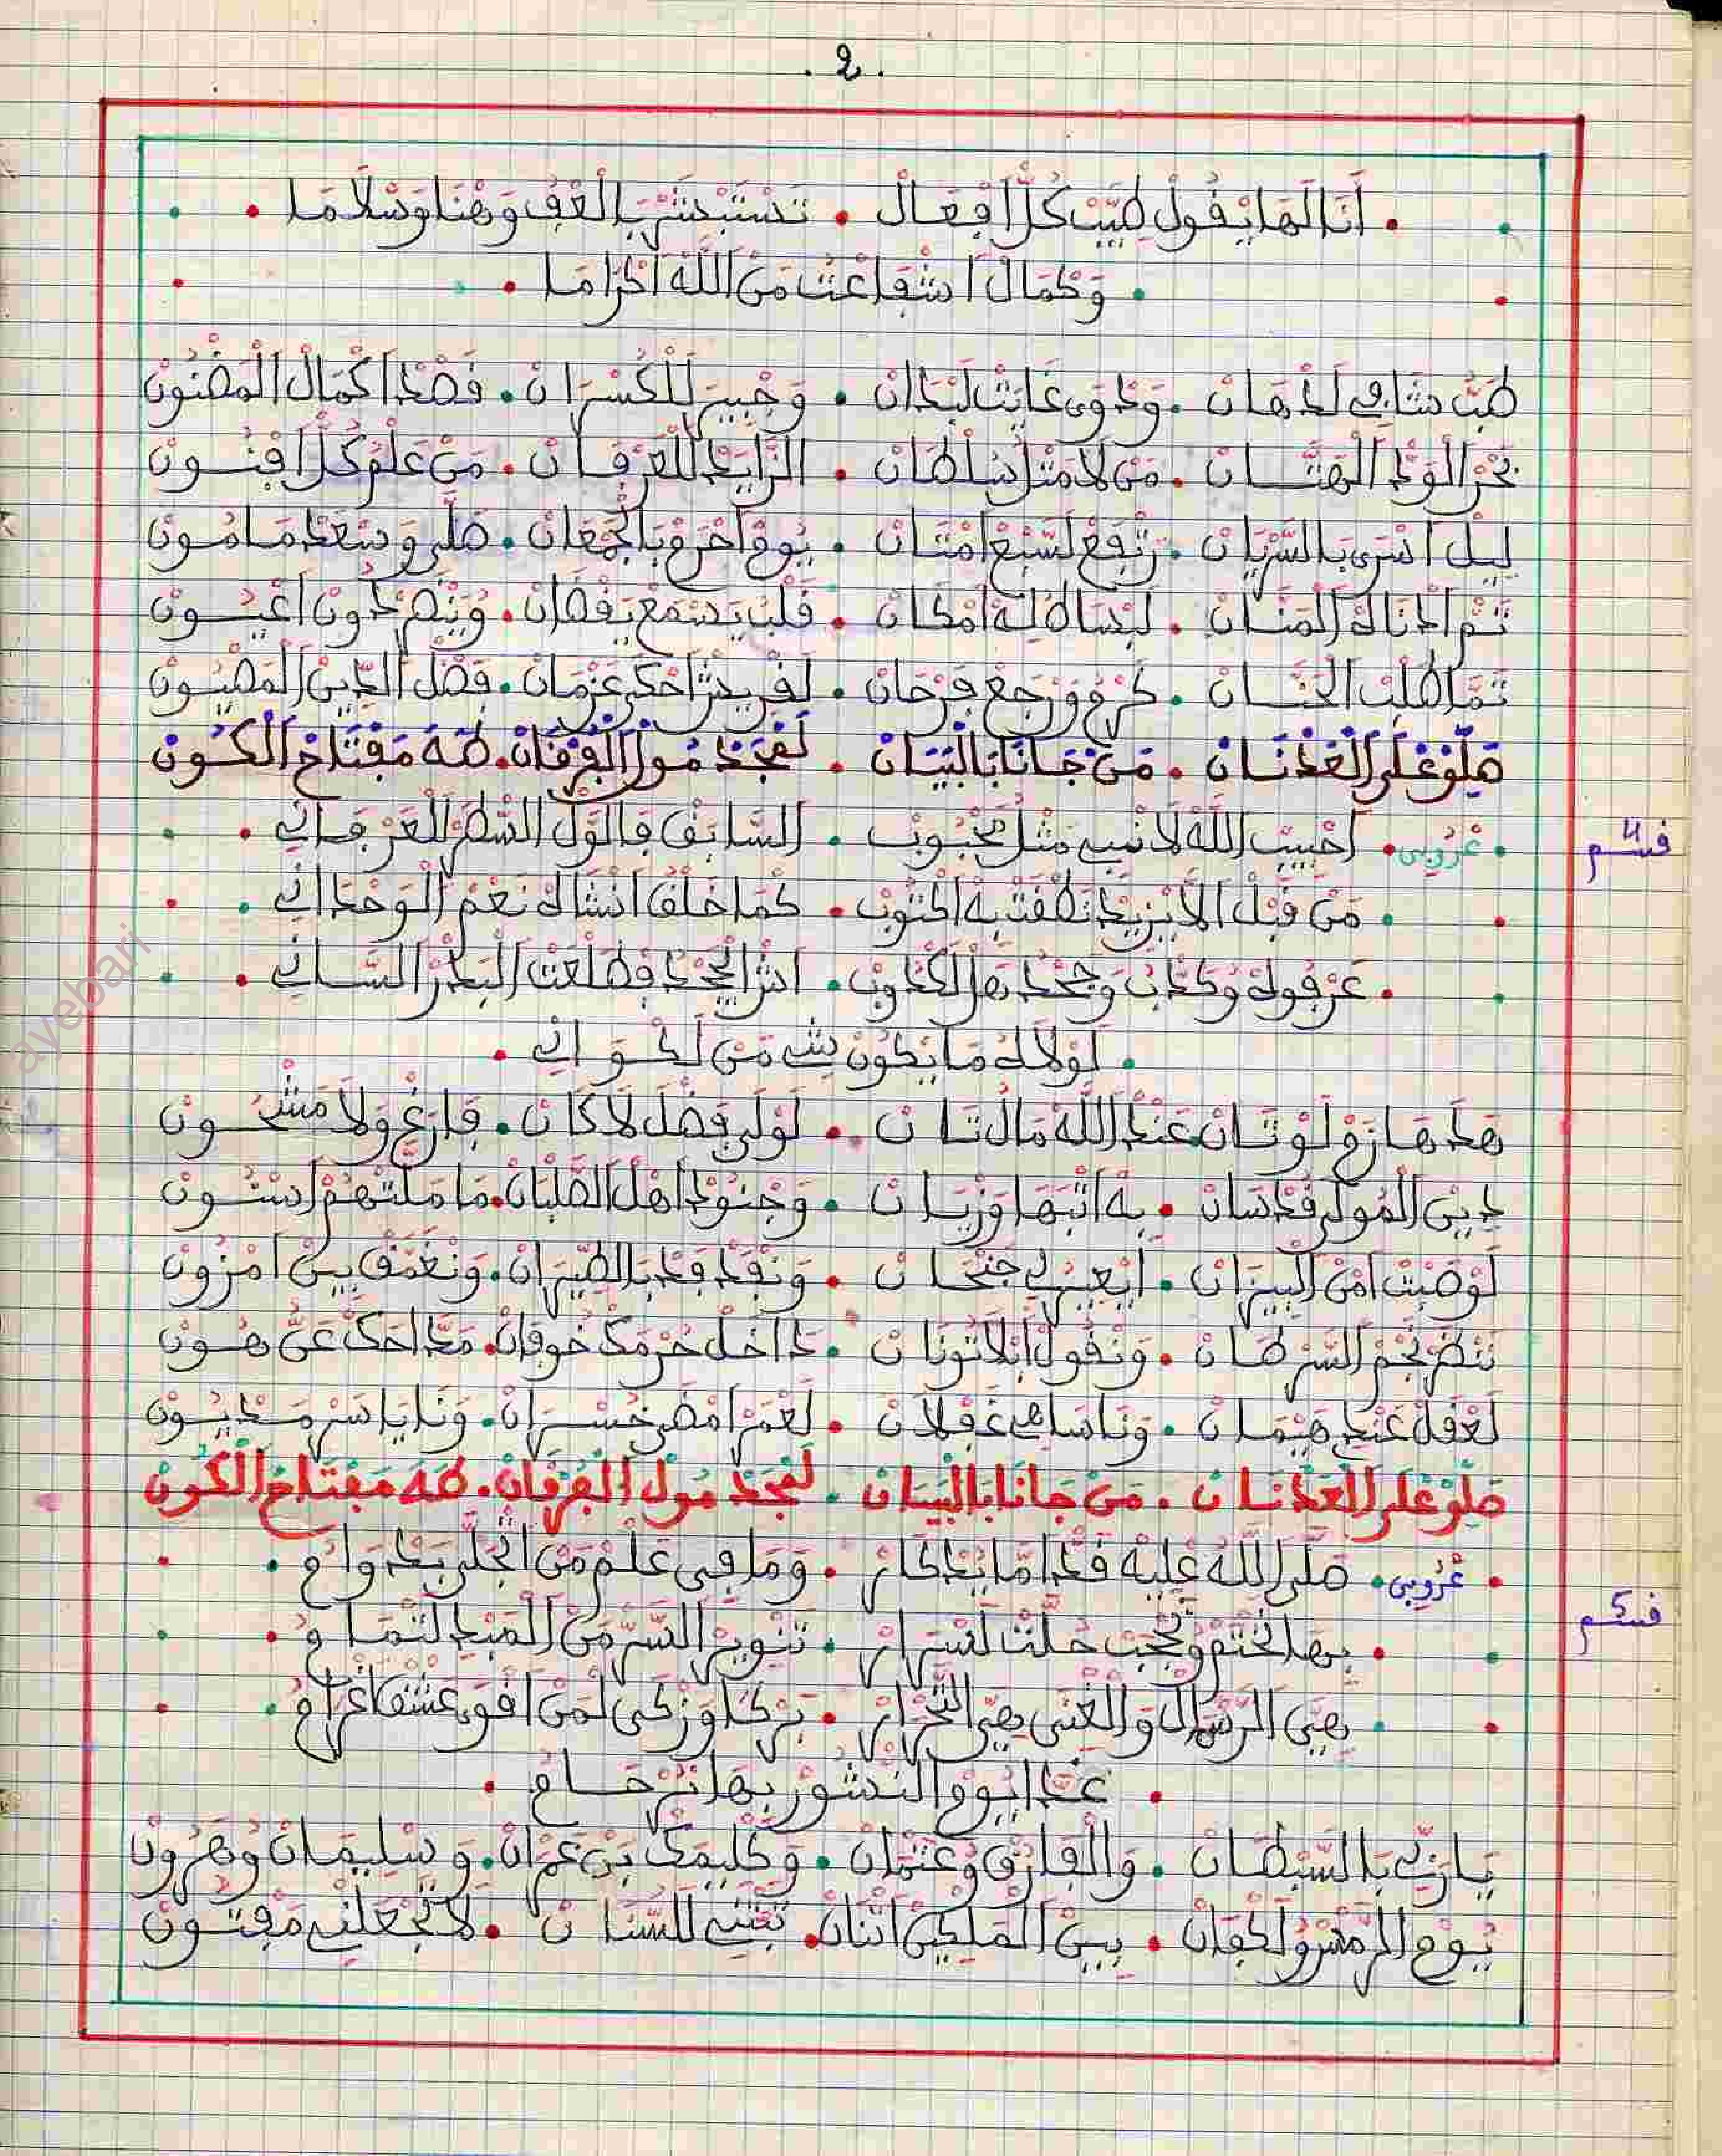 . 2 .
. أَنَا الَهَا يْقُولْ طَيَّبْ كُلّْ أَفْعَالْ . تَسْتَبْشَرْ بِالْعَفُ وَهْنَا وَسْلَامَا .
. وَكْمَالْ اشْفَاعْتْ مَنْ اللَّهْ اكْرَامَا .
طَبّْ شَافِي لَذْهَانْ . وَدْوَى غَايَتْ لَبْدَانْ . وَجْبِيرْ لَلْكَسْرَانْ . قَصْدْ اكْمَالْ الْمَضْنُونْ
بَحْرْ الْوَدْ الْهَتَّانْ . مَنْ لَا مَثْلُ سُلْطَانْ . الزَّايَدْ لَلْعَرْفَانْ . مَنْ عَلْمُ كُلّْ افْنُونْ
لِيلْ اسْرَى بَالسَّرْيَانْ . رَتْفَعْ لَسْبَعْ امْتَانْ . يُومْ احْرَمْ بَالْجَمْعَانْ . صَلَّى وَسْعَدْ مَامُونْ
ثَمّْ ادْنَاهْ الْمَنَّانْ . لَبْسَاطْ لِهْ امْكَانْ . قَلْبُ يَسْمَعْ يَقْضَانْ . وَيْنَضْرْ دُونْ اعْيُونْ
تَمَّا طْلَبْ الْحَنَّانْ . كَرْمُ وَرْجَعْ فَرْحَانْ . لَقْرِيشْ احْكَى عَزْمَانْ . فَضْلْ الدِّينْ الْمَصْيُونْ
صَلُّوْ عْلَى الْعَدْنَانْ . مَنْ جَانَا بَالْبَيَانْ . لَمْجَدْ مُولْ الْفُرْقَانْ . طَهَ مَفْتَاحْ الْكُونْ
قسم 4 . عْرُوبِي . احْبِيبْ اللَّهْ لَا نْبِي مَثْلُ مَحْبُوبْ . السَّابَقْ فَالْوَّلْ السَّطَرْ الْعَرْفَانِي .
. مَنْ قَبْلْ الَا يْزِيدْ نَطْقَتْ بَهْ اكْتُوبْ . كْمَا خَلْقُ انْشَاهْ نَعْمْ الْوَحْدَانِي .
. عَرْفُوهْ وْكَذَّابْ وَجْحْدْ هَلْ لَكْذُوبْ . اثْرْ الْجَحْدْ فْطَلْعَتْ الْبَدْرْ السَّانِي .
. لَوْلَاهْ مَا يْكُونْ شِي مَنْ لَكْوَانِي .
هَذْ هَا زَمْ لَوْثَانْ عَنْدْ اللَّهْ مَالْ ثَانْ . لَوْلَى فَضْلُ لَا كَانْ . فَارَغْ وَلَا مَشْحُونْ
دِينْ الْمُولَى قَدْ شَانْ . بِهْ ابْهَا وَزْيَانْ . وَجْنُودْ اهْلْ الصَّلْبَانْ . مَا مَلَّتْهُمْ اسْنُونْ
لَوْصَبْتْ امْنْ الْبِيزَانْ . ايْعِيرْلِي جَنْحَانْ . وَنْفَدْفَدْ بَالطِّيرَانْ . وَنْغَمَّقْ بِينْ امْزُونْ
نَنْضَرْ نَجْمْ السَّرْطَانْ . وَنْقُولْ ابْلَا تَوْنَانْ . دَاخَلْ حُرْمَكْ خُوفَانْ . مَدَّاحَكْ عَنُّ هُونْ
لَعْقَلْ عَنْدِ هَيْمَانْ . وَنَا سَاهِي غَفْلَانْ . لَعْمَرْ امْضَى خَسْرَانْ . وَنَا يَا سَرْ مَدْيُونْ
صَلُّوْ عْلَى الْعَدْنَانْ . مَنْ جَانَا بَالْبَيَانْ . لَمْجَدْ مُولْ الْفُرْقَانْ . طَهَ مَفْتَاحْ الْكُونْ
قسم 5 . عْرُوبِي . صَلَّى اللَّهْ عْلِيهْ قَدّْ امَّا يَدْكَارْ . وَمَا فِي عَلْمُ مَنْ اتْجَلَّى بَدْوَامْ .
. بِهَا نَخْتَمْ وُحُجْبْ حُلَّتْ لَسْرَارْ . تَنْوِيرْ السَّرّْ مَنْ الْمَبْدِ لَتْمَامْ .
. هِيَ الرَّسْمَالْ وَالْغْنَى هِيَ التَّجَّارْ . بَرْكَا وَزْكَى لَمَنْ اقْوَى عَشْقُ اغْرَامْ .
. غَدَّا يُومْ النُّشُورْ بِهَا نَرْحَامْ .
يَا رَبِّي بَالسَّبْطَانْ . وَالْفَارُقْ وُعَثْمَانْ . وَكْلِيمَكْ بَنْ عَمْرَانْ . وَسْلِيمَانْ وُهَرُونْ
يُومْ الرَّمْسْ وُلَكْفَانْ . بِينْ الْمَلْكِينْ اثْنَانْ . تَبَّتْنِي لَلسَّنَّانْ . لَا تَجْعَلْنِي مَفْتُونْ
ayebari